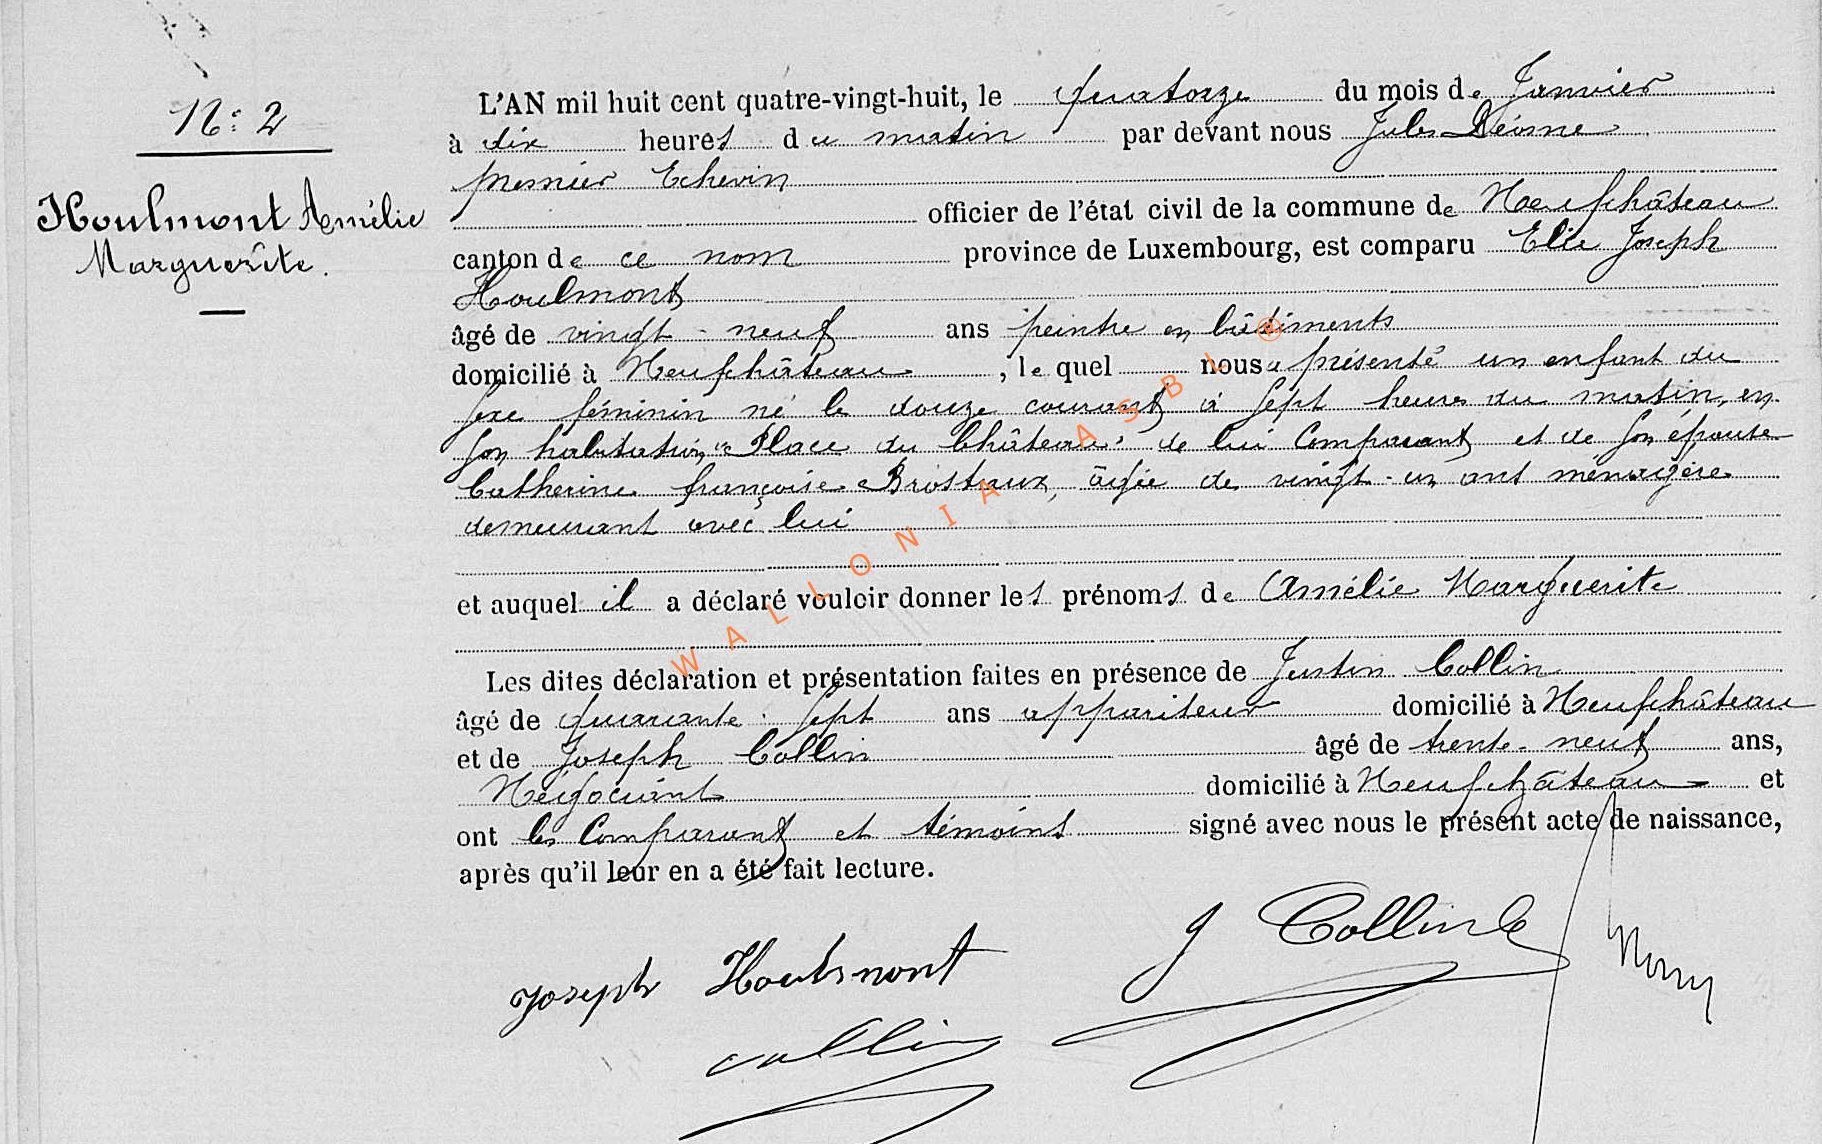 N: 2
Houlmont Amélie
Marguerite.
L'AN mil huit cent quatre-vingt-huit, le quatorze du mois de Janvier
à dix heures du matin par devant nous Jules
premier Echevin
officier de l'état civil de la commune de Neufchâteau
canton de ce nom province de Luxembourg, est comparu Elie Joseph
Houlmont
âgé de vingt-neuf ans peintre en bâtiments
domicilié à Neufchâteau, le quel nous a présenté un enfant du
sexe féminin né le douze courant à sept heures du matin, en
son habitation "Place du Château" de lui Comparant et de son épouse
Catherine françoise Briostaux, âgée de vingt-un ans ménagère
demeurant avec lui
et auquel il a déclaré vouloir donner les prénoms de Amélie Marguerite
Les dites déclaration et présentation faites en présence de Justin Collin
âgé de quarante-sept ans appariteur domicilié à Neufchâteau
et de Joseph Collin âgé de trente-neuf ans,
Négociant domicilié à Neufchâteau et
ont les Comparant et témoins signé avec nous le présent acte de naissance,
après qu'il leur en a été fait lecture.
J Collin
Joseph Houlmont
Collin
WALLONIA ASBL ®